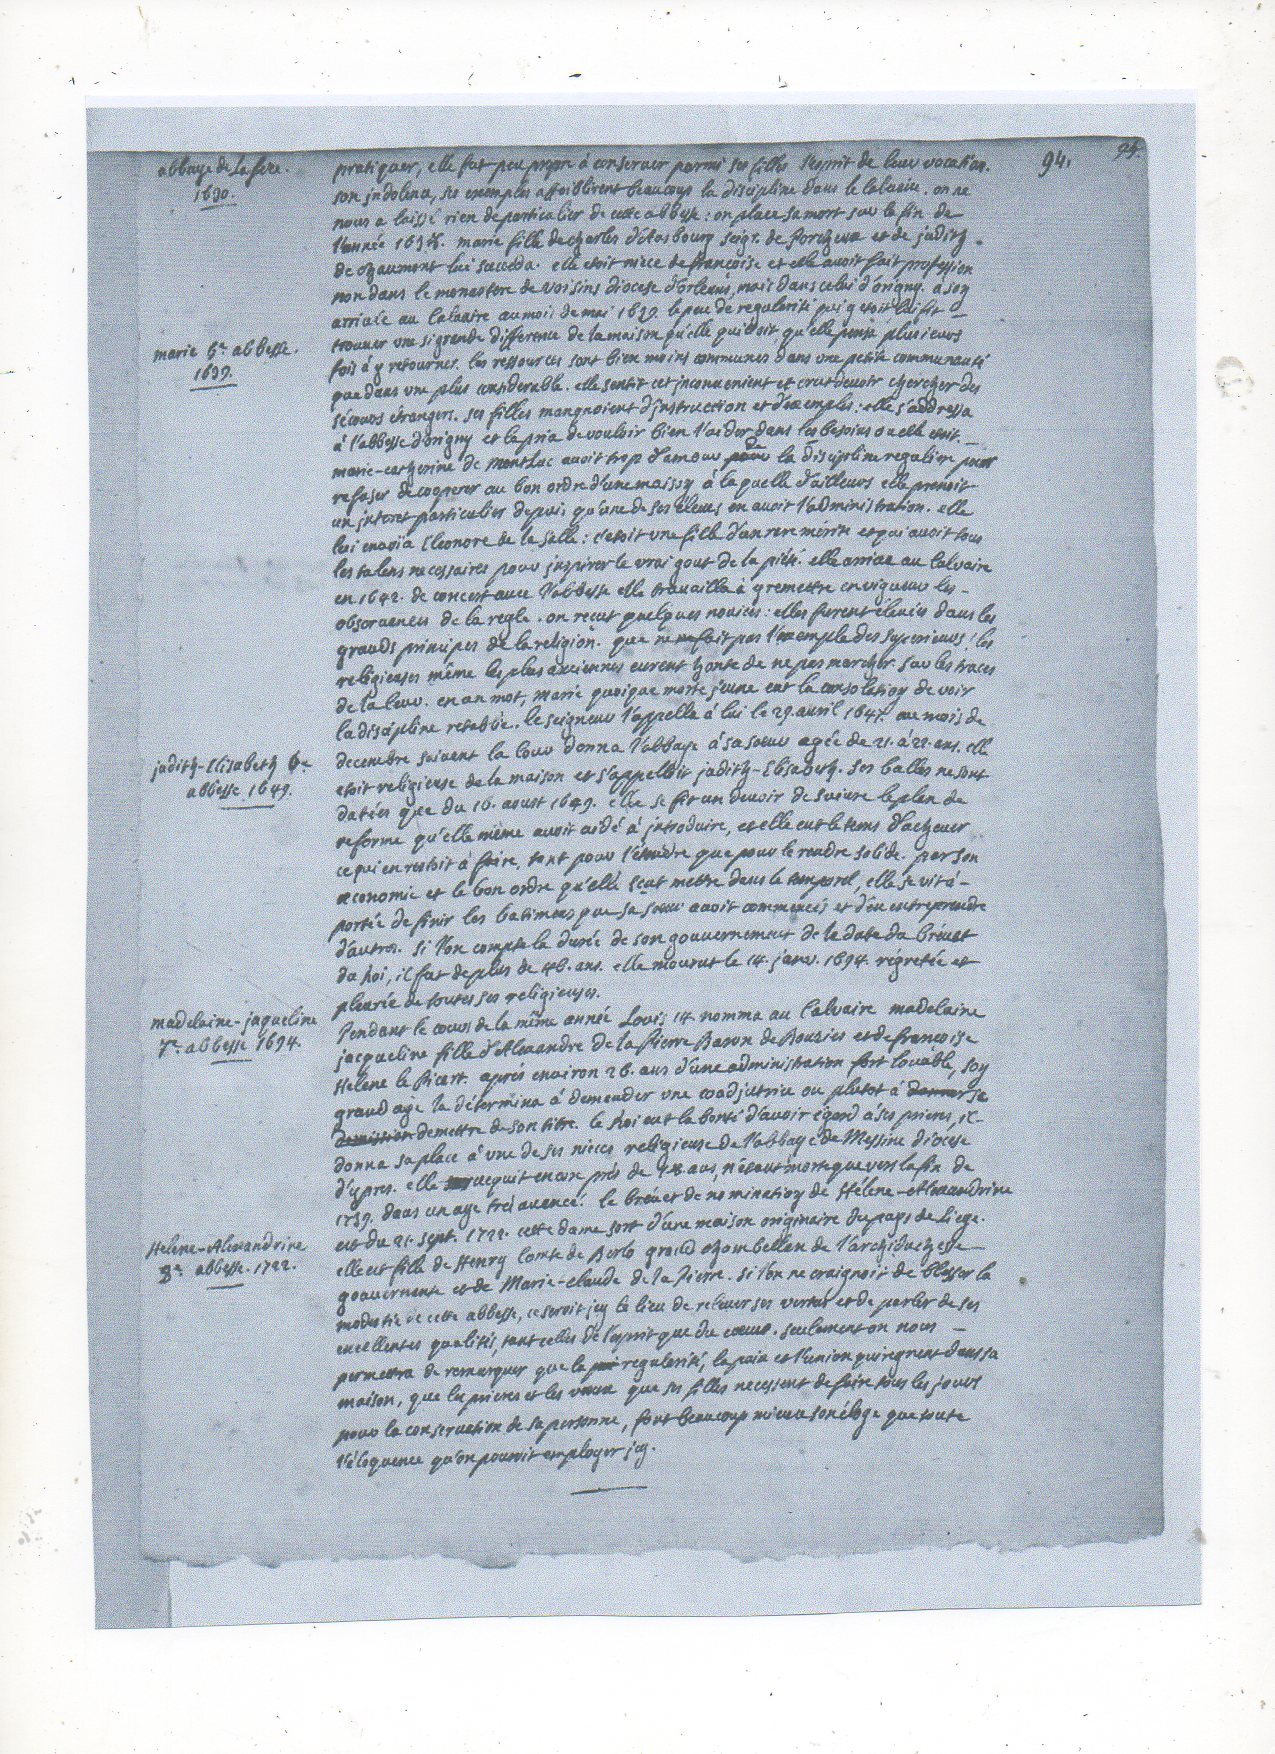 94.
94.
abbaye de La fere.
1630.
pratiquer, elle fut peu propre à conserver parmi ses filles l'esprit de leur vocation.
son jndolence, ses exemples affoiblirent beaucoup la discipline dans le Calvaire. on ne
nous a laissé rien de particulier de cette abbesse : on place sa mort sur la fin de
l'année 1638. marie fille de charles d'Estasbourg seigr. de et de judith
de chaumont lui succeda. elle etoit niece de françoise et elle avoit fait profession
non dans le monastere de voisins diocese d'Orleans, mais dans celui d'origny. à son
arrivée au Calvaire au mois de mai 1639. le peu de regularité qui y etoit lui fit
marie 5e. abbesse.
1639.
trouver une si grande difference de la maison qu'elle quittoit qu'elle pensa plusieurs
fois d'y retourner. les ressources sont bien moins communes dans une petite communauté
que dans une plus considerable. elle sentit cet jnconvenient et crut devoir chercher des
sécours étrangers. ses filles manquoient d'jnstruction et d'exemples : elle s'addressa
à l'abbesse d'origny et la pria de vouloir bien l'aider dans les besoins ou elle etoit.
marie-catherine de Montluc avoit trop d'amour pour de la discipline reguliere pour
refuser de cooperer au bon ordre d'une maison à la quelle d'ailleurs elle prenoit
un jnteret particulier depuis qu'une de ses éleves en avoit l'administration. elle
lui envoïa Eleonore de la Salle : c'etoit une fille d'un rare mérite et qui avoit tous
les talens necessaires pour jnspirer le vrai gout de la piété. elle arriva au Calvaire
en 1642. de concert avec l'abbesse elle travailla à y remettre en vigueur les
observances de la regle. on reçut quelques novices : elles furent élevées dans les
grands principes de la religion. que ne fait pas l'exemple des superieurs ! les
religieuses même les plus anciennes eurent honte de ne pas marcher sur les traces
de la leur. en un mot, marie quoique morte jeune eut la consolation de voir
la discipline retablie. le seigneur l'appella à lui le 29. avril 1647. au mois de
judith-Elisabeth 6e.
abbesse 1649.
decembre suivant la Cour donna l'abbaye à sa soeur agée de 21. à 22. ans. elle
etoit religieuse de la maison et s'appelloit judith-Elisabeth. ses bulles ne sont
datées que du 16. aoust 1649. elle se fit un devoir de suivre le plan de
reforme qu'elle même avoit aidé à jntroduire, et elle eut le tems d'achever
ce qui en restoit à faire, tant pour l'étendre que pour le rendre solide. par son
oeconomie et le bon ordre qu'elle sçut mettre dans le temporel, elle se vit à
portée de finir les batimens que sa soeur avoit commencés et d'en entreprendre
d'autres. si l'on compte la durée de son gouvernement de la date du brévet
du Roi, il fut de plus de 46. ans. elle mourut le 14. janv. 1694. régretée et
pleurée de toutes ses religieuses.
madelaine-jaqueline
7e. abbesse 1694.
Pendant le cours de la même année Louis 14 nomma au Calvaire madelaine
jacqueline fille d'Alexandre de la Pierre Baron de Bousies et de françoise
Helene le Picart. après environ 28. ans d'une administration fort louable, son
grand age la détermina à demander une coadjutrice ou plutot à donner se
démission demettre de son titre. le Roi eut la bonté d'avoir égard à ses prieres, il
donna sa place à une de ses nieces religieuse de l'abbaye de Messine diocese
d'ypres. elle vecquit encore près de 18 ans, n'étant morte que vers la fin de
1739. dans un age très avancé. le brévet de nomination de Hélene-Alexandrine
Helene-Alexandrine
8e. abbesse. 1722.
est du 21. sept. 1722. cette dame sort d'une maison originaire du pays de Liege.
elle est fille de Henry Comte de Berlo grand chambellan de l'archiduchesse
gouvernante et de Marie-claude de la Pierre. si l'on ne craignoit de blesser la
modestie de cette abbesse, ce seroit jcy le lieu de relever ses vertus et de parler de ses
excellentes qualités, tant celles de l'esprit que du coeur. seulement on nous
permettra de remarquer que la regularité, la paix et l'union qui regnent dans sa
maison, que les prieres et les voeux que ses filles ne cessent de faire tous les jours
pour la conservation de sa personne, font beaucoup mieux son éloge que toute
l'éloquence qu'on pouroit employer jcy.